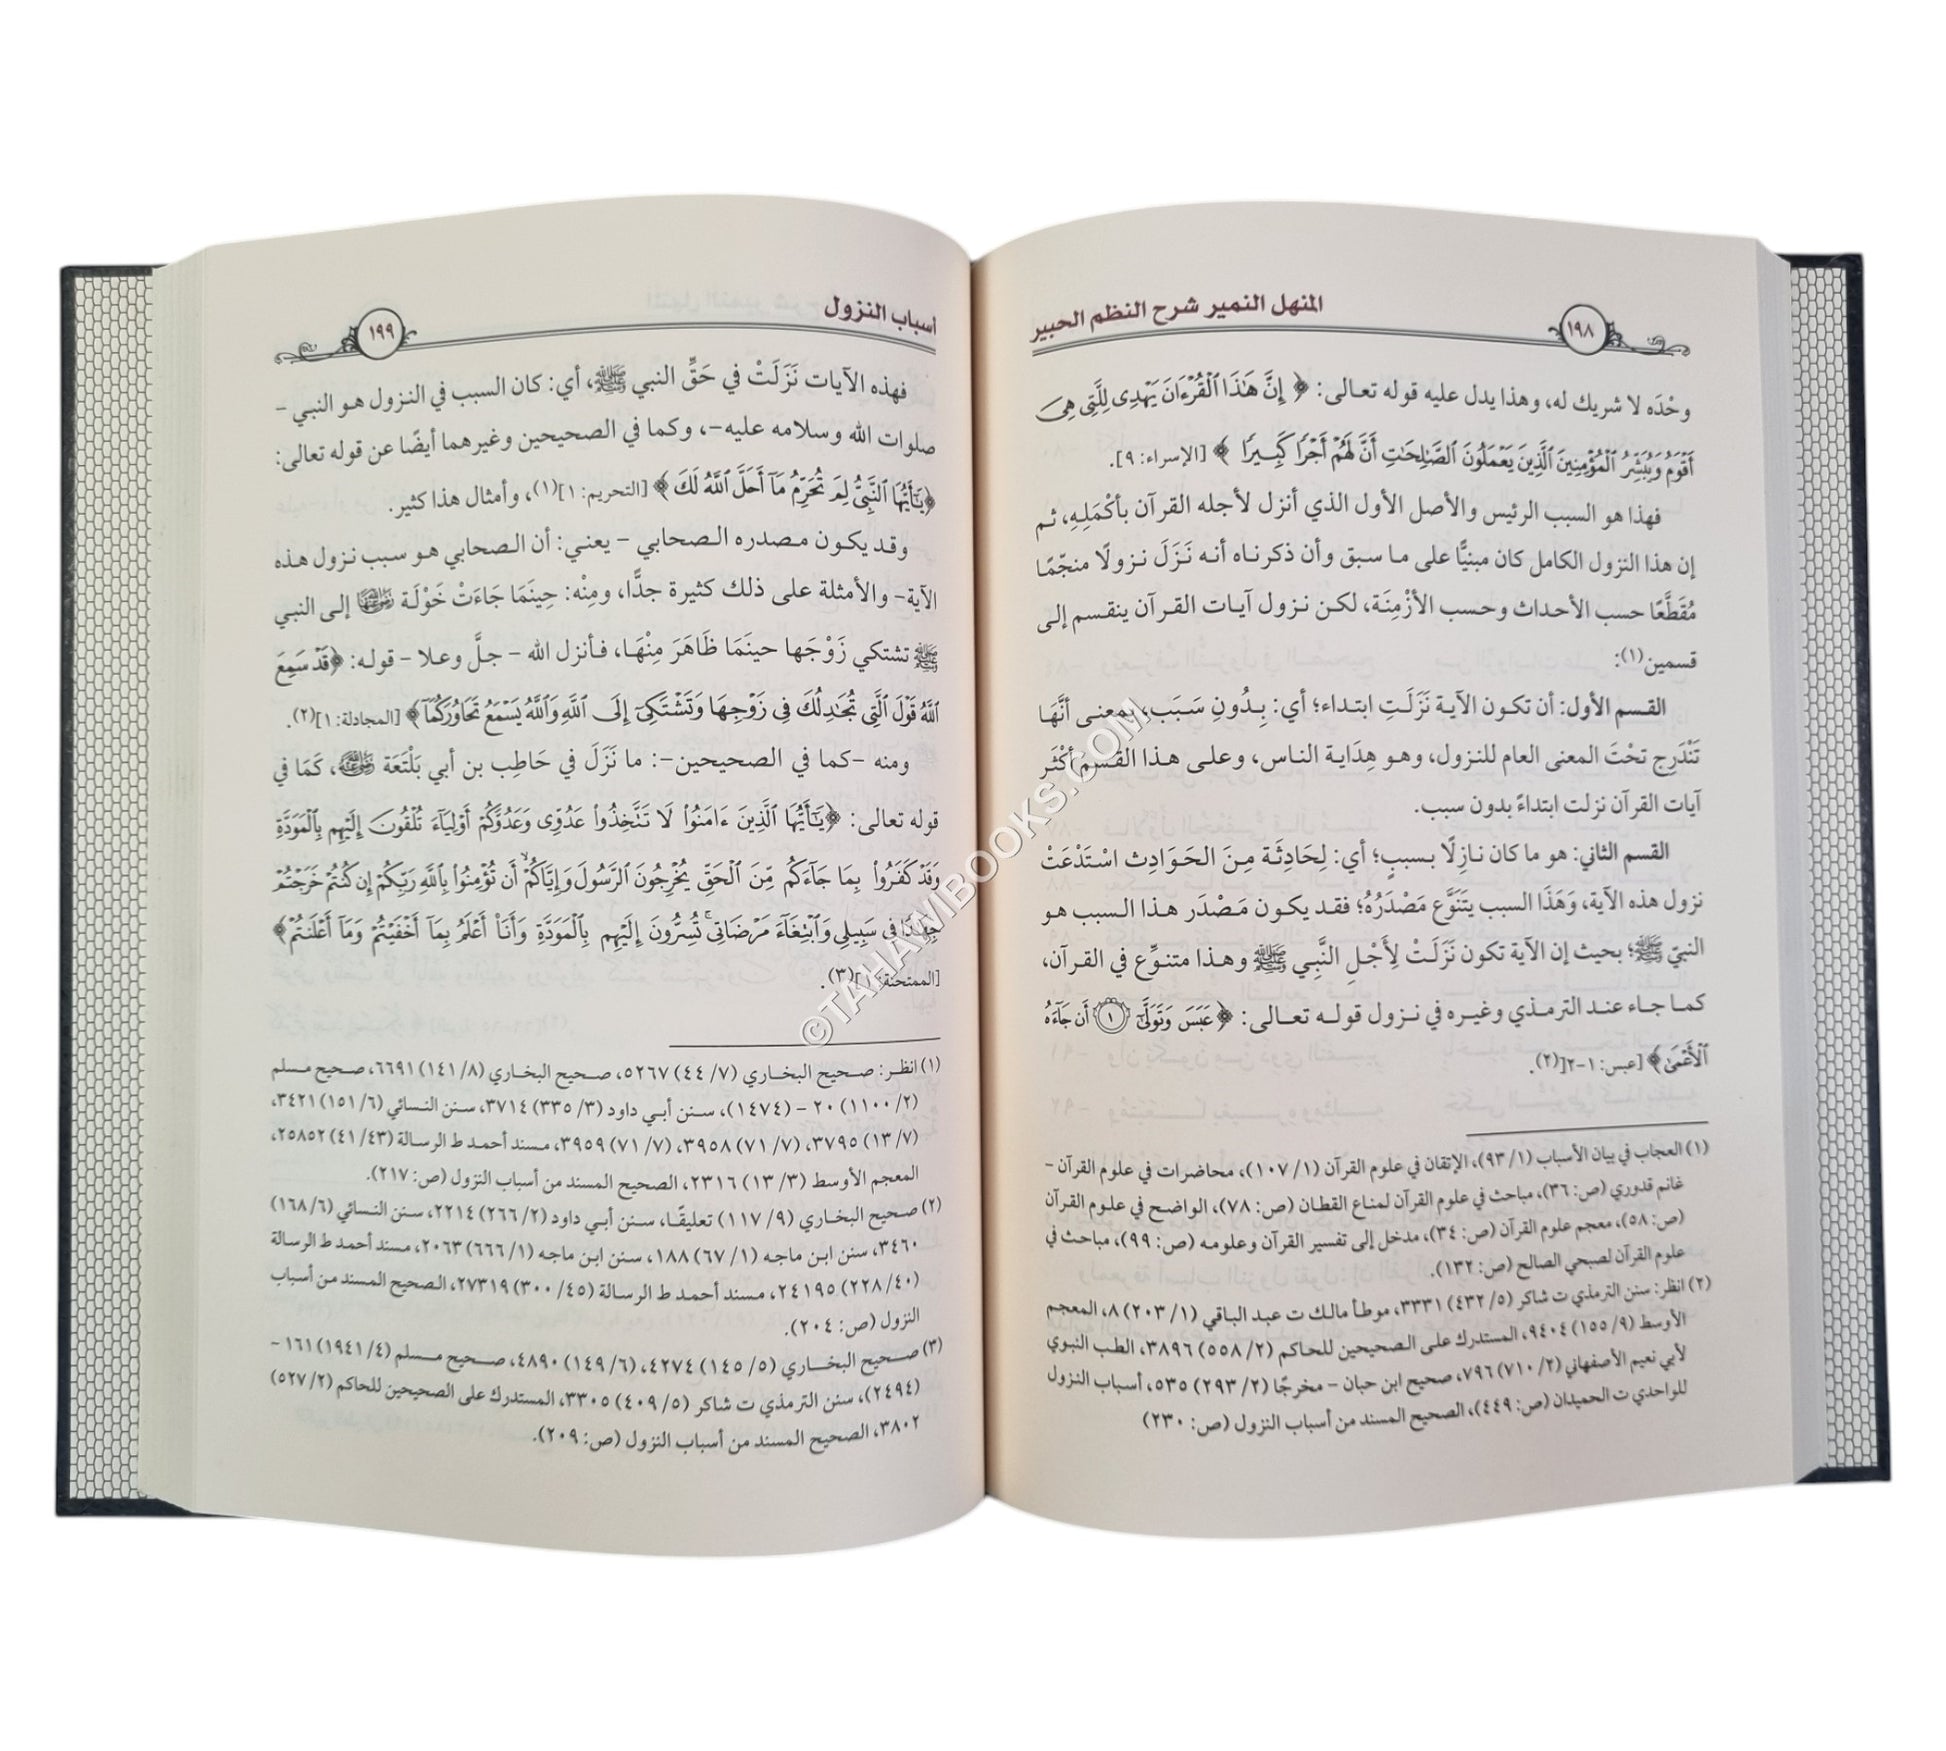 ١٩٨
المنهل النمير شرح النظم الحبير
وحْدَه لا شريك له، وهذا يدل عليه قوله تعالى: ﴿إِنَّ هَٰذَا ٱلْقُرْءَانَ يَهْدِى لِلَّتِى هِىَ
أَقْوَمُ وَيُبَشِّرُ ٱلْمُؤْمِنِينَ ٱلَّذِينَ يَعْمَلُونَ ٱلصَّـٰلِحَـٰتِ أَنَّ لَهُمْ أَجْرًا كَبِيرًا﴾ [الإسراء: ٩].
فهذا هو السبب الرئيس والأصل الأول الذي أنزل لأجله القرآن بأكْمَلِهِ، ثم
إن هذا النزول الكامل كان مبنيًّا على ما سبق وأن ذكرناه أنه نَزَلَ نزولًا منجّمًا
مُقَطَّعًا حسب الأحداث وحسب الأزْمِنَة، لكن نزول آيات القرآن ينقسم إلى
قسمين(١):
القسم الأول: أن تكون الآية نَزَلَتِ ابتداء؛ أي: بِدُونِ سَبَب، بمعنى أنَّهَا
تَنْدَرِج تحْتَ المعنى العام للنزول، وهو هِدَاية الناس، وعلى هذا القسم أكْثَر
آيات القرآن نزلت ابتداءً بدون سبب.
القسم الثاني: هو ما كان نازِلًا بسببٍ؛ أي: لِحَادِثَة مِنَ الحَوَادِث اسْتَدْعَتْ
نزول هذه الآية، وَهَذَا السبب يتَنَوَّع مَصْدَرُهُ؛ فقد يكون مَصْدَر هذا السبب هو
النبيّ ﷺ؛ بحيث إن الآية تكون نَزَلَتْ لِأَجْلِ النَّبِي ﷺ وهذا متنوِّع في القرآن،
كما جاء عند الترمذي وغيره في نزول قوله تعالى: ﴿عَبَسَ وَتَوَلَّىٰٓ ١ أَن جَآءَهُ
ٱلْأَعْمَىٰ﴾ [عبس: ١-٢](٢).
(١) العجاب في بيان الأسباب (١/ ٩٣)، الإتقان في علوم القرآن (١/ ١٠٧)، محاضرات في علوم القرآن -
غانم قدوري (ص: ٣٦)، مباحث في علوم القرآن لمناع القطان (ص: ٧٨)، الواضح في علوم القرآن
(ص: ٥٨)، معجم علوم القرآن (ص: ٣٤)، مدخل إلى تفسير القرآن وعلومه (ص: ٩٩)، مباحث في
علوم القرآن لصبحي الصالح (ص: ١٣٢).
(٢) انظر: سنن الترمذي ت شاكر (٥/ ٤٣٢) ٣٣٣١، موطأ مالك ت عبد الباقي (١/ ٢٠٣) ٨، المعجم
الأوسط (٩/ ١٥٥) ٩٤٠٤، المستدرك على الصحيحين للحاكم (٢/ ٥٥٨) ٣٨٩٦، الطب النبوي
لأبي نعيم الأصفهاني (٢/ ٧١٠) ٧٩٦، صحيح ابن حبان - مخرجًا (٢/ ٢٩٣) ٥٣٥، أسباب النزول
للواحدي ت الحميدان (ص: ٤٤٩)، الصحيح المسند من أسباب النزول (ص: ٢٣٠)
أسباب النزول
١٩٩
فهذه الآيات نَزَلَتْ في حَقِّ النبي ﷺ، أي: كان السبب في النزول هو النبي -
صلوات الله وسلامه عليه-، وكما في الصحيحين وغيرهما أيضًا عن قوله تعالى:
﴿يَـٰٓأَيُّهَا ٱلنَّبِىُّ لِمَ تُحَرِّمُ مَآ أَحَلَّ ٱللَّهُ لَكَ﴾ [التحريم: ١](١)، وأمثال هذا كثير.
وقد يكون مصدره الصحابي - يعني: أن الصحابي هو سبب نزول هذه
الآية- والأمثلة على ذلك كثيرة جدًّا، ومِنْه: حِينَمَا جَاءَتْ خَوْلَة رضي الله عنها إلى النبي
ﷺ تشتكي زَوْجَها حينَمَا ظَاهَرَ مِنْهَا، فأنزل الله - جلَّ وعلا - قوله: ﴿قَدْ سَمِعَ
ٱللَّهُ قَوْلَ ٱلَّتِى تُجَـٰدِلُكَ فِى زَوْجِهَا وَتَشْتَكِىٓ إِلَى ٱللَّهِ وَٱللَّهُ يَسْمَعُ تَحَاوُرَكُمَآ﴾ [المجادلة: ١](٢).
ومنه -كما في الصحيحين-: ما نَزَلَ في حَاطِب بن أبي بَلْتَعَة رضي الله عنه، كَمَا في
قوله تعالى: ﴿يَـٰٓأَيُّهَا ٱلَّذِينَ ءَامَنُوا۟ لَا تَتَّخِذُوا۟ عَدُوِّى وَعَدُوَّكُمْ أَوْلِيَآءَ تُلْقُونَ إِلَيْهِم بِٱلْمَوَدَّةِ
وَقَدْ كَفَرُوا۟ بِمَا جَآءَكُم مِّنَ ٱلْحَقِّ يُخْرِجُونَ ٱلرَّسُولَ وَإِيَّاكُمْ ۙ أَن تُؤْمِنُوا۟ بِٱللَّهِ رَبِّكُمْ إِن كُنتُمْ خَرَجْتُمْ
جِهَـٰدًا فِى سَبِيلِى وَٱبْتِغَآءَ مَرْضَاتِى ۚ تُسِرُّونَ إِلَيْهِم بِٱلْمَوَدَّةِ وَأَنَا۠ أَعْلَمُ بِمَآ أَخْفَيْتُمْ وَمَآ أَعْلَنتُمْ﴾
[الممتحنة: ١](٣).
(١) انظر: صحيح البخاري (٧/ ٤٤) ٥٢٦٧، صحيح البخاري (٨/ ١٤١) ٦٦٩١، صحيح مسلم
(٢/ ١١٠٠) ٢٠ - (١٤٧٤)، سنن أبي داود (٣/ ٣٣٥) ٣٧١٤، سنن النسائي (٦/ ١٥١) ٣٤٢١،
(٧/ ١٣) ٣٧٩٥، (٧/ ٧١) ٣٩٥٨، (٧/ ٧١) ٣٩٥٩، مسند أحمد ط الرسالة (٤٣/ ٤١) ٢٥٨٥٢،
المعجم الأوسط (٣/ ١٣) ٢٣١٦، الصحيح المسند من أسباب النزول (ص: ٢١٧).
(٢) صحيح البخاري (٩/ ١١٧) تعليقًا، سنن أبي داود (٢/ ٢٦٦) ٢٢١٤، سنن النسائي (٦/ ١٦٨)
٣٤٦٠، سنن ابن ماجه (١/ ٦٧) ١٨٨، سنن ابن ماجه (١/ ٦٦٦) ٢٠٦٣، مسند أحمد ط الرسالة
(٤٠/ ٢٢٨) ٢٤١٩٥، مسند أحمد ط الرسالة (٤٥/ ٣٠٠) ٢٧٣١٩، الصحيح المسند من أسباب
النزول (ص: ٢٠٤).
(٣) صحيح البخاري (٥/ ١٤٥) ٤٢٧٤، (٦/ ١٤٩) ٤٨٩٠، صحيح مسلم (٤/ ١٩٤١) ١٦١ -
(٢٤٩٤)، سنن الترمذي ت شاكر (٥/ ٤٠٩) ٣٣٠٥، المستدرك على الصحيحين للحاكم (٢/ ٥٢٧)
٣٨٠٢، الصحيح المسند من أسباب النزول (ص: ٢٠٩).
©TAHAWIBOOKS.COM